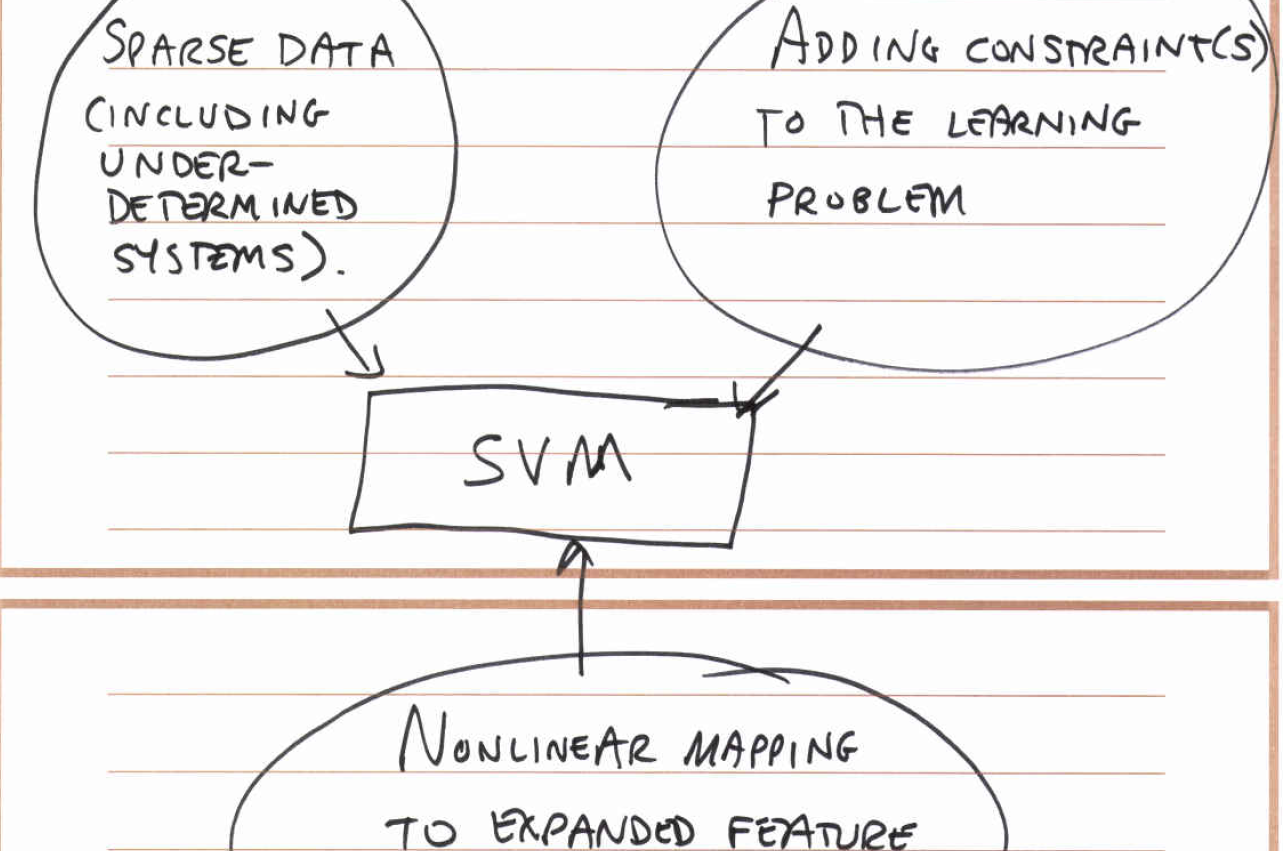 SPARSE DATA
(INCLUDING
UNDER-
DETERMINED
SYSTEMS).
ADDING CONSTRAINT(S)
TO THE LEARNING
PROBLEM
SVM
NONLINEAR MAPPING
TO EXPANDED FEATURE